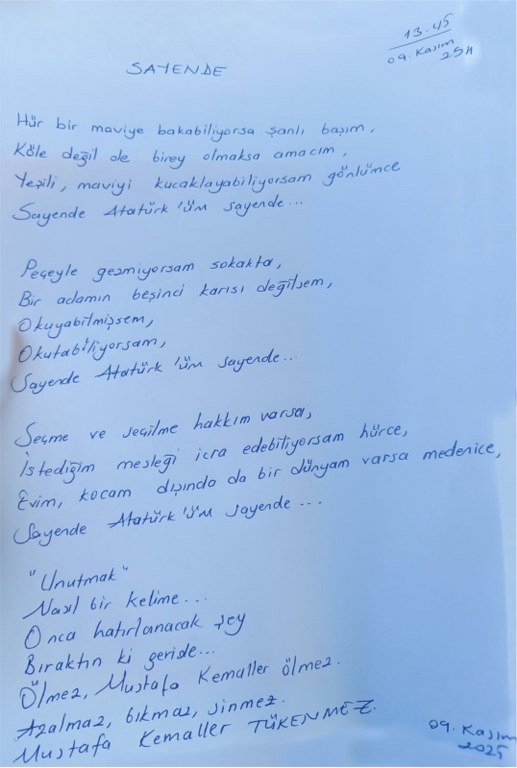 13.45
09. Kasım
SAYENDE
Hür bir maviye bakabiliyorsa şanlı başım,
Köle değil de birey olmaksa amacım,
Yeşili, maviyi kucaklayabiliyorsam gönlümce
Sayende Atatürk'üm sayende...
Peçeyle gezmiyorsam sokakta,
Bir adamın beşinci karısı değilsem,
Okuyabilmişsem,
Okutabiliyorsam,
Sayende Atatürk'üm sayende...
Seçme ve seçilme hakkım varsa,
İstediğim mesleği icra edebiliyorsam hürce,
Evim, kocam dışında da bir dünyam varsa medenice,
Sayende Atatürk'üm sayende...
"Unutmak"
Nasıl bir kelime...
Onca hatırlanacak şey
Bıraktın ki geride...
Ölmez, Mustafa Kemaller ölmez.
Azalmaz, bıkmaz, sinmez.
Mustafa Kemaller TÜKENMEZ.
09. Kasım
2025